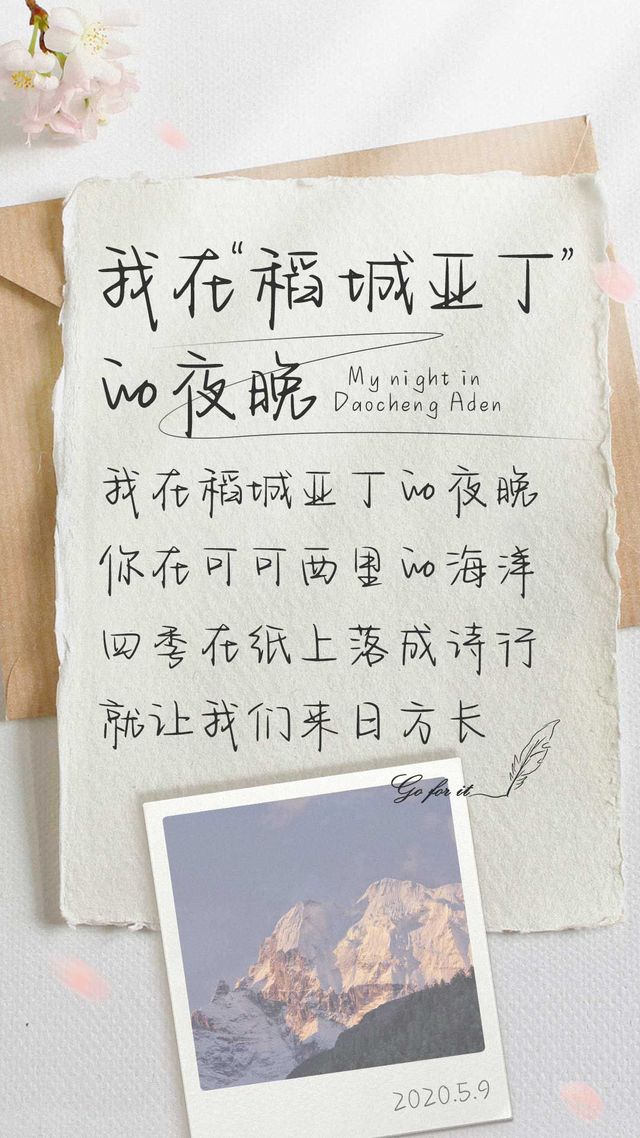 我在“稻城亚丁”
的夜晚
My night in
Daocheng Aden
我在稻城亚丁的夜晚
你在可可西里的海洋
四季在纸上落成诗行
就让我们来日方长
Go for it
2020.5.9